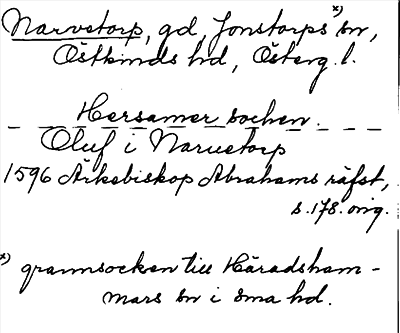 Narvetorp, gd, Jonstorps *) sn,
Östkinds hd, Österg. l.
Hersamer sochen.
Oluf i Naruetorp
1596 Ärkebiskop Abrahams räfst,
s. 178. orig.
*) grannsocken till Häradsham-
mars sn i sma hd.